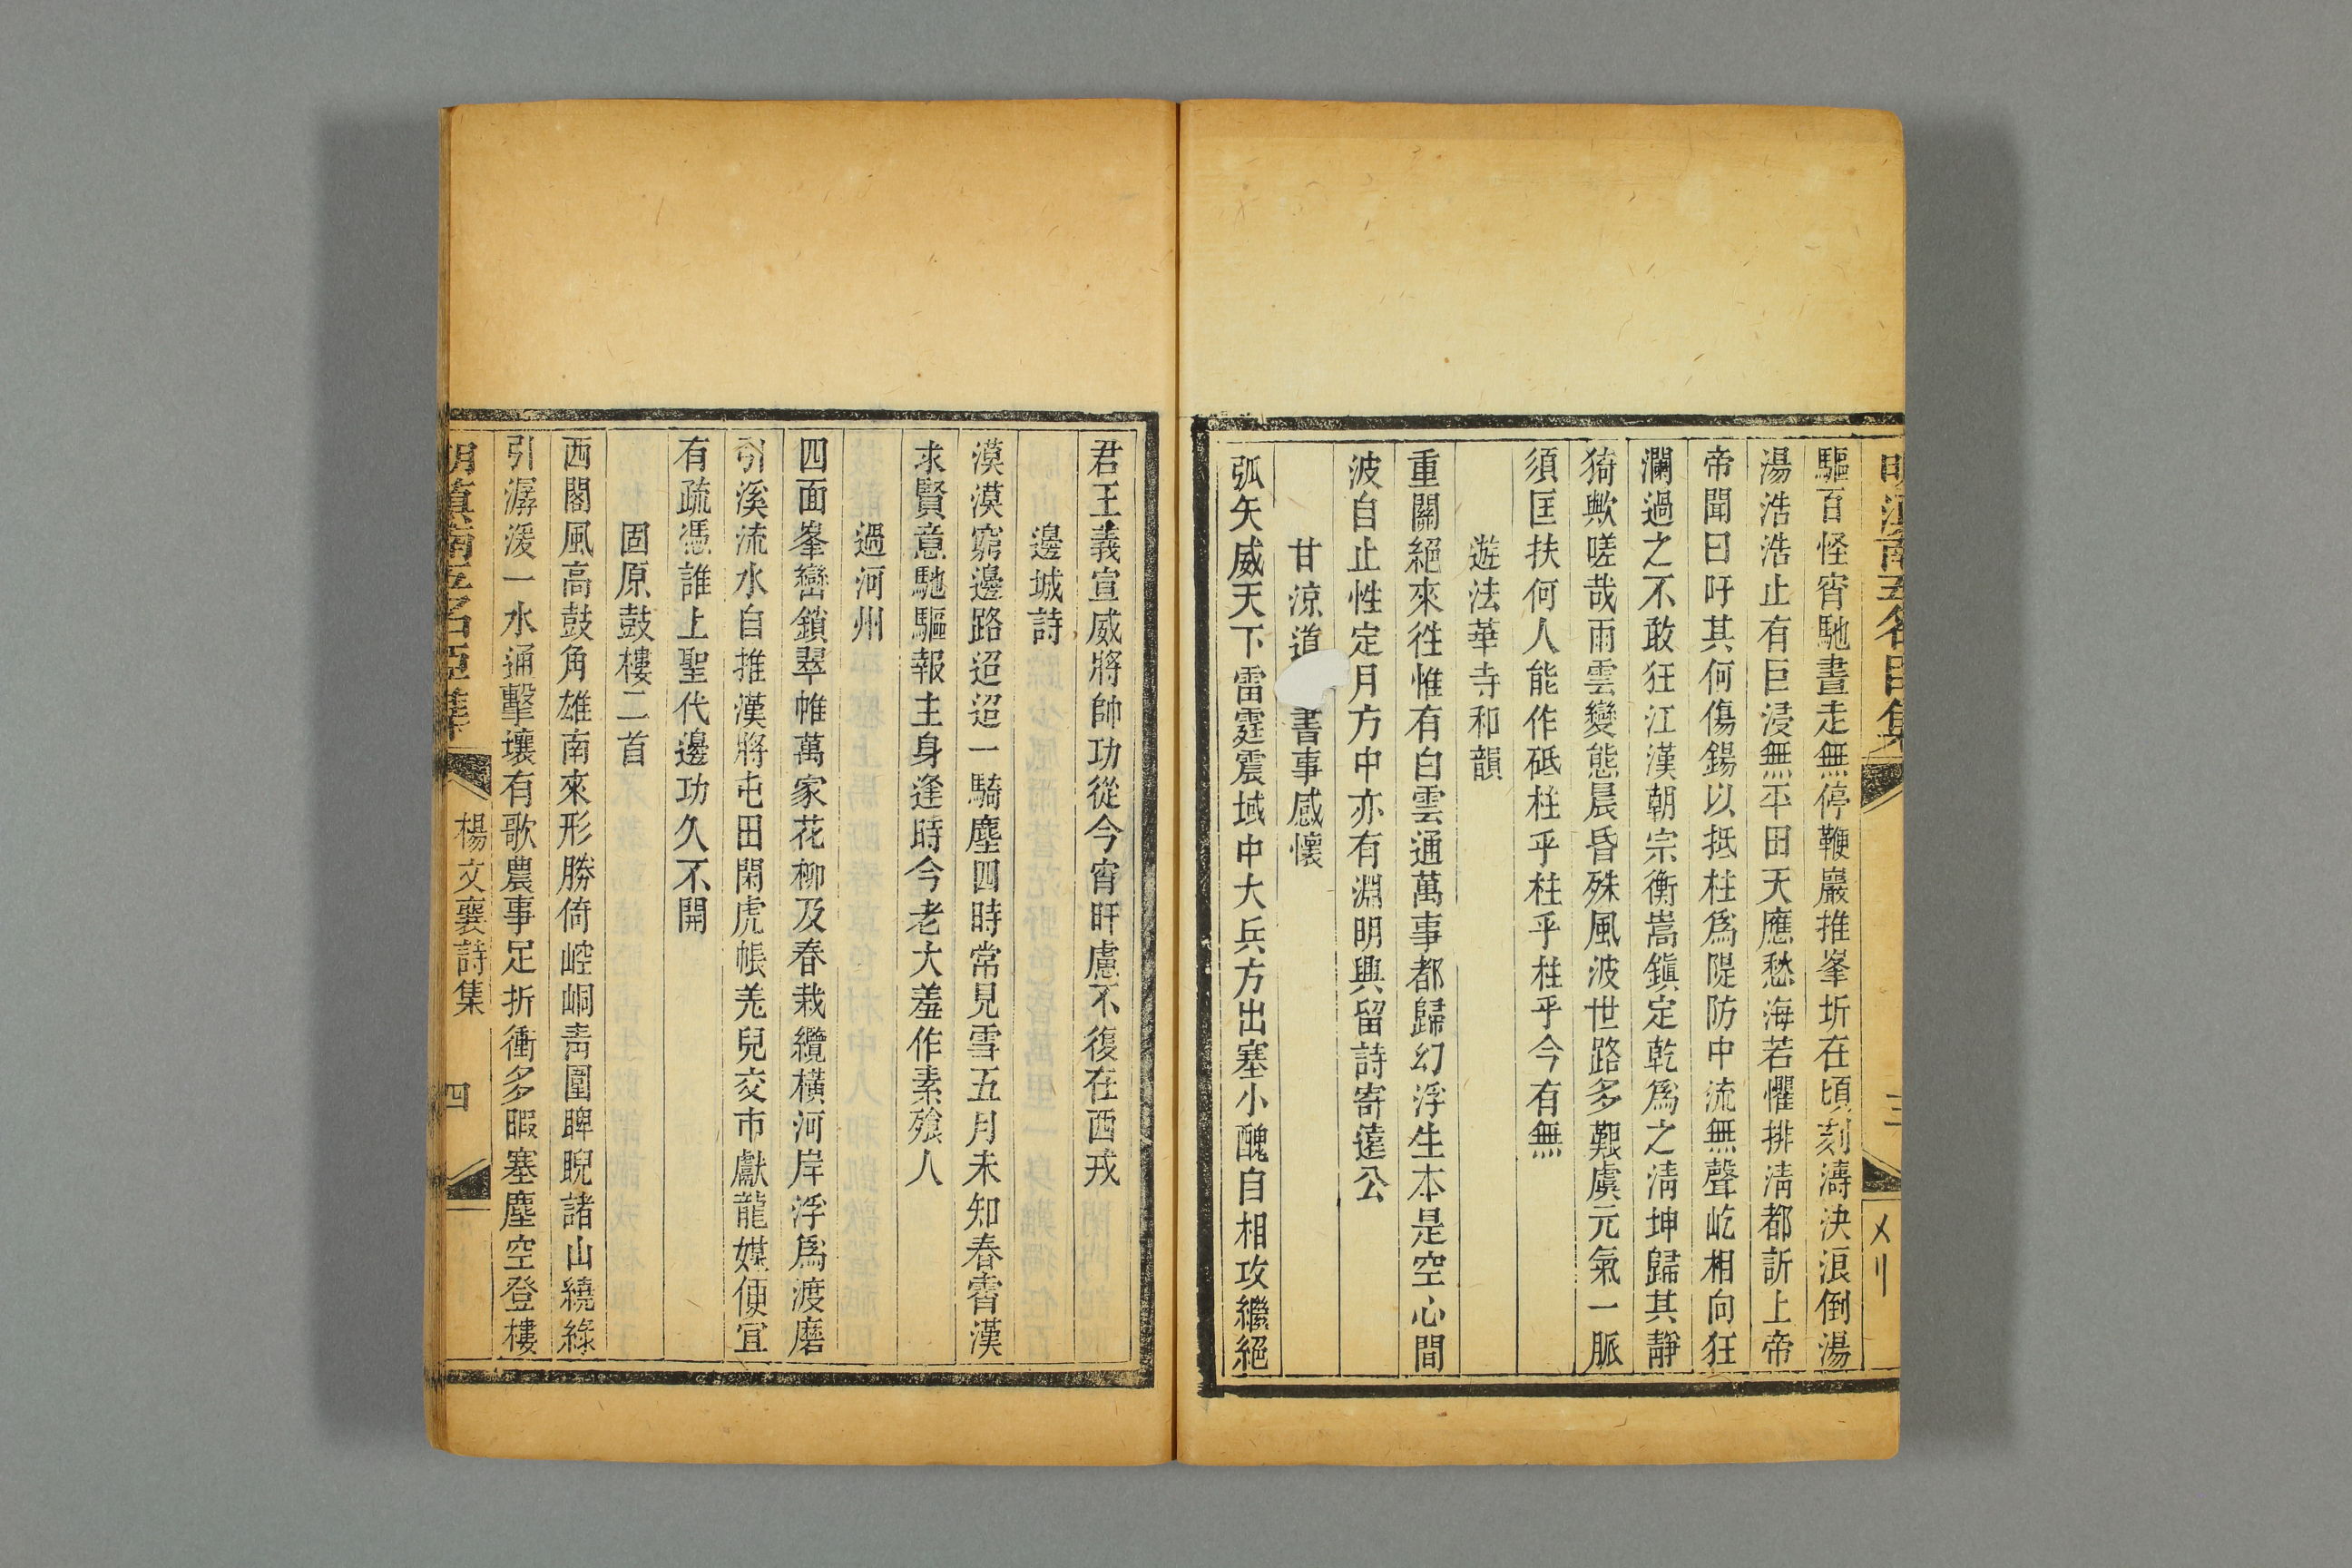 驅百怪宵馳晝走無停鞭巖推峯圻在頃刻濤決浪倒湯
湯浩浩止有巨浸無平田天應愁海若懼排淸都訴上帝
帝聞曰吁其何傷錫以抵柱爲隄防中流無聲屹相向狂
瀾過之不敢狂江漢朝宗衡嵩鎭定乾爲之淸坤歸其靜
猗歟嗟哉雨雲變態晨昏殊風波世路多艱虞元氣一脈
須匡扶何人能作砥柱乎柱乎柱乎今有無
遊法華寺和韻
重關絕來徃惟有白雲通萬事都歸幻浮生本是空心間
波自止性定月方中亦有淵明興留詩寄遠公
甘涼道書事感懷
弧矢威天下雷霆震域中大兵方出塞小醜自相攻繼絕
君王義宣威將帥功從今宵旰慮不復在西戎
邊城詩
漠漠窮邊路迢迢一騎塵四時常見雪五月未知春霄漢
求賢意馳驅報主身逢時今老大羞作素飱人
過河州
四面峯巒鎖翠帷萬家花柳及春栽纜橫河岸浮爲渡磨
引溪流水自推漢將屯田閑虎帳羌兒交市獻龍媒便宜
有疏憑誰上聖代邊功久不開
固原鼓樓二首
西閣風高鼓角雄南來形勝倚崆峒靑圍睥睨諸山繞綠
引潺湲一水通擊壤有歌農事足折衝多暇塞塵空登樓
楊文襄詩集
四